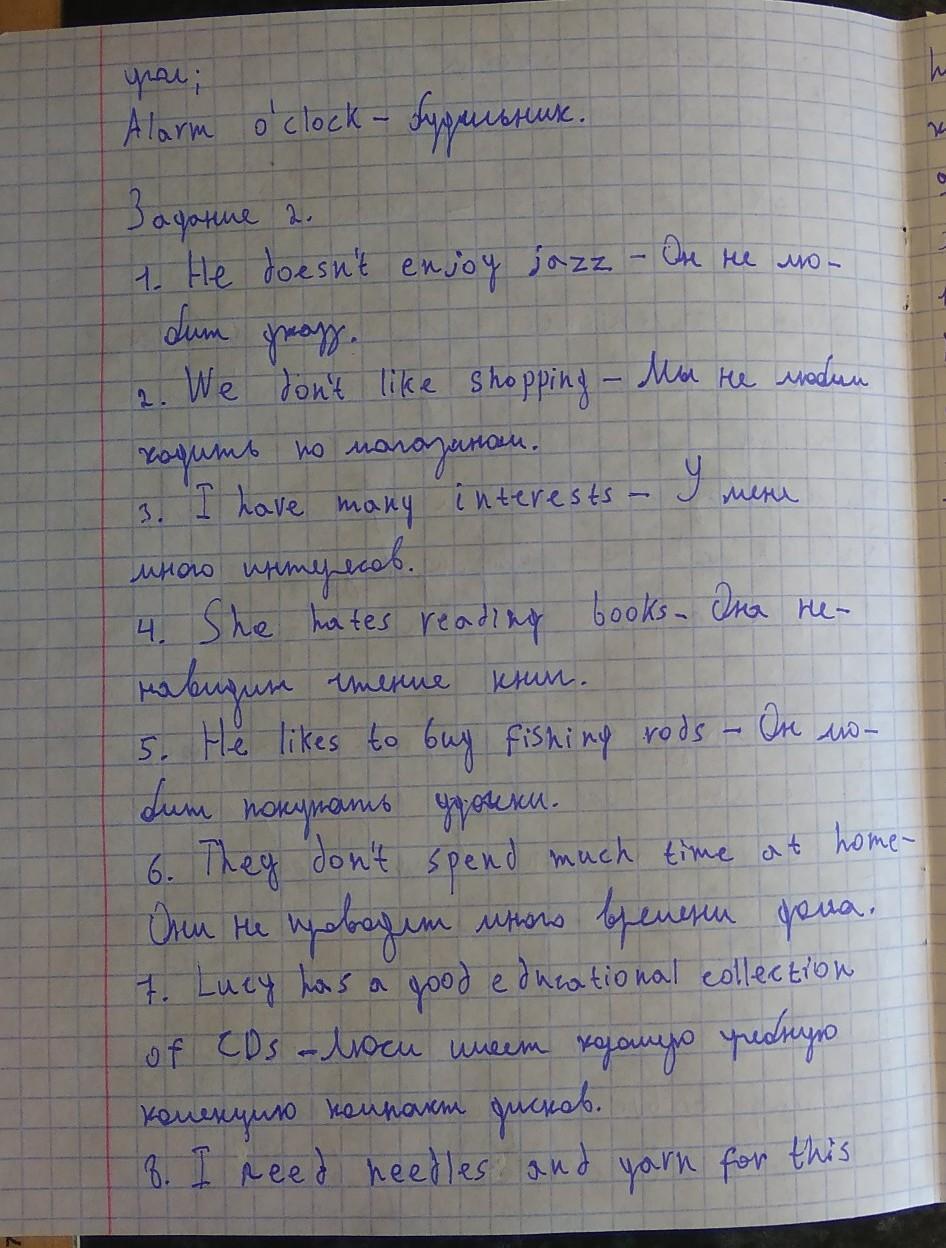 Alarm o'clock - будильник.
Задание 2.
1. He doesn't enjoy jazz - Он не лю-
бит джаз.
2. We don't like shopping - Мы не любим
ходить по магазинам.
3. I have many interests - У меня
много интересов.
4. She hates reading books - Она не-
навидит чтение книг.
5. He likes to buy fishing rods - Он лю-
бит покупать удочки.
6. They don't spend much time at home -
Они не проводят много времени дома.
7. Lucy has a good educational collection
of CDs - Люси имеет хорошую учебную
колекцию компакт дисков.
8. I need needles and yarn for this